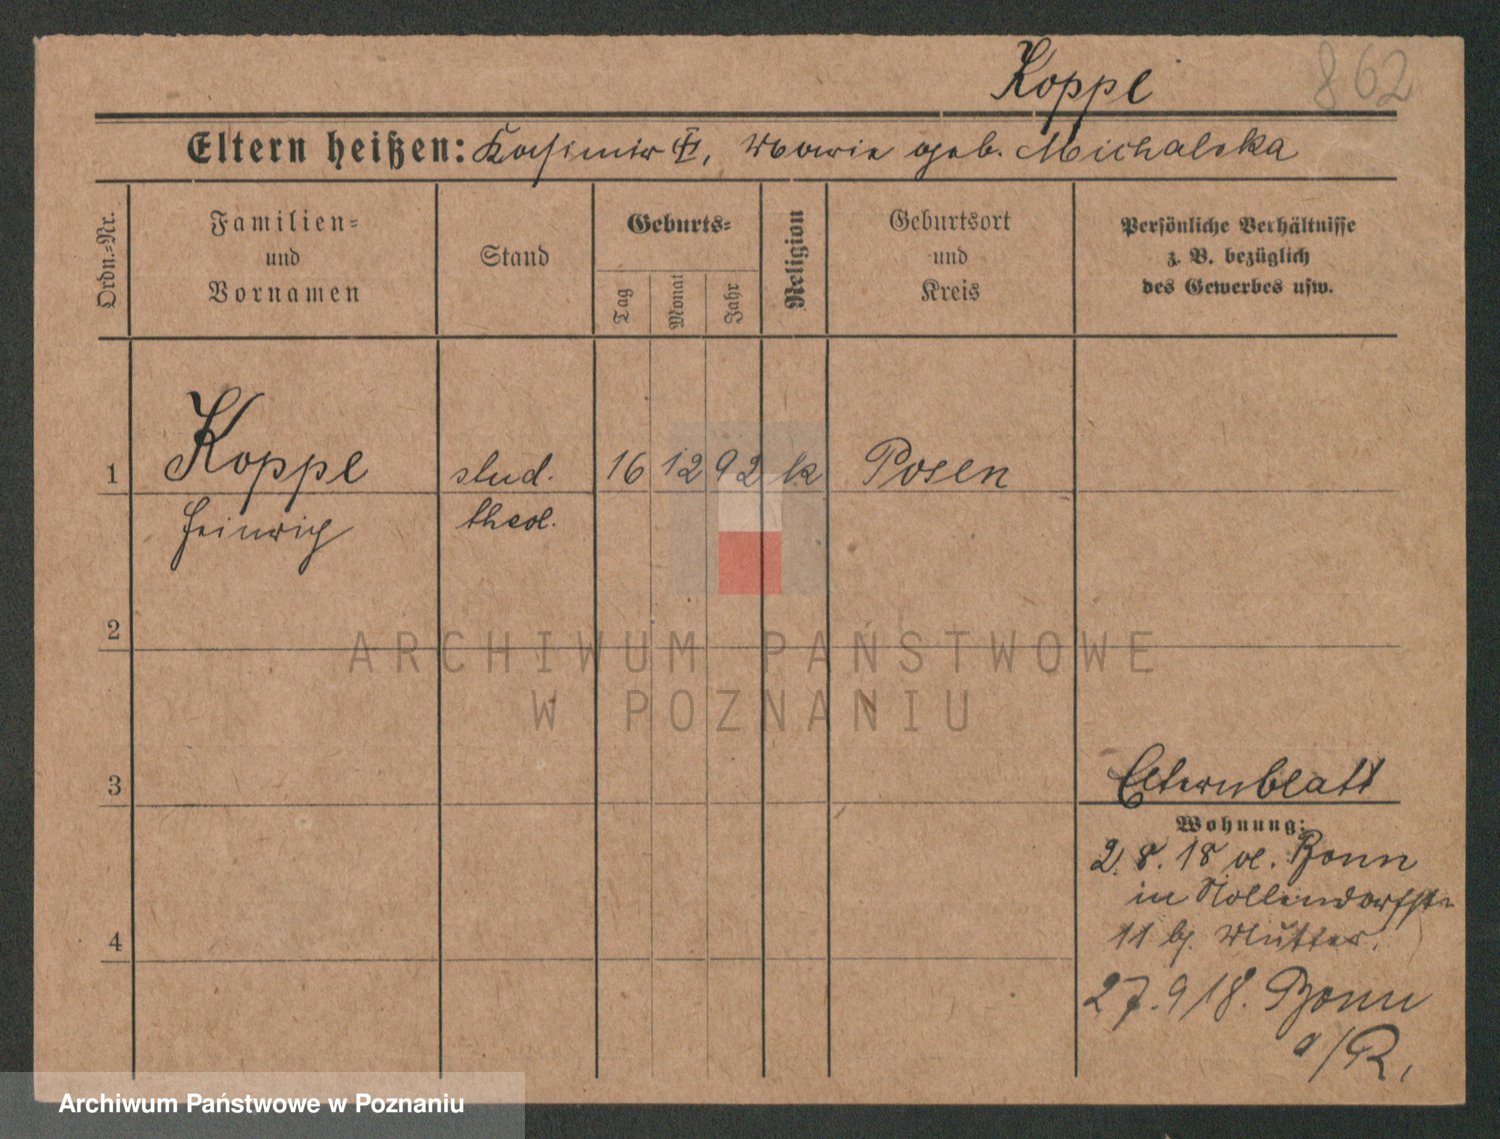 Koppe 862
Eltern heißen: Kasimir †, Marie geb. Michalska
Ordn.=Nr.
Familien=
und
Vornamen
Stand
Geburts=
Tag
Monat
Jahr
Religion
Geburtsort
und
Kreis
Persönliche Verhältnisse
z. B. bezüglich
des Gewerbes usw.
1 Koppe stud. 16 12 92 k Posen
Heinrich theol.
2
ARCHIWUM PAŃSTWOWE
W POZNANIU
3 Elternblatt
Wohnung:
2.8.18 v. Bonn
in Nollendorfstr
11 b. Mutter.
4
27.9 18. Bonn
a/R.
Archiwum Państwowe w Poznaniu